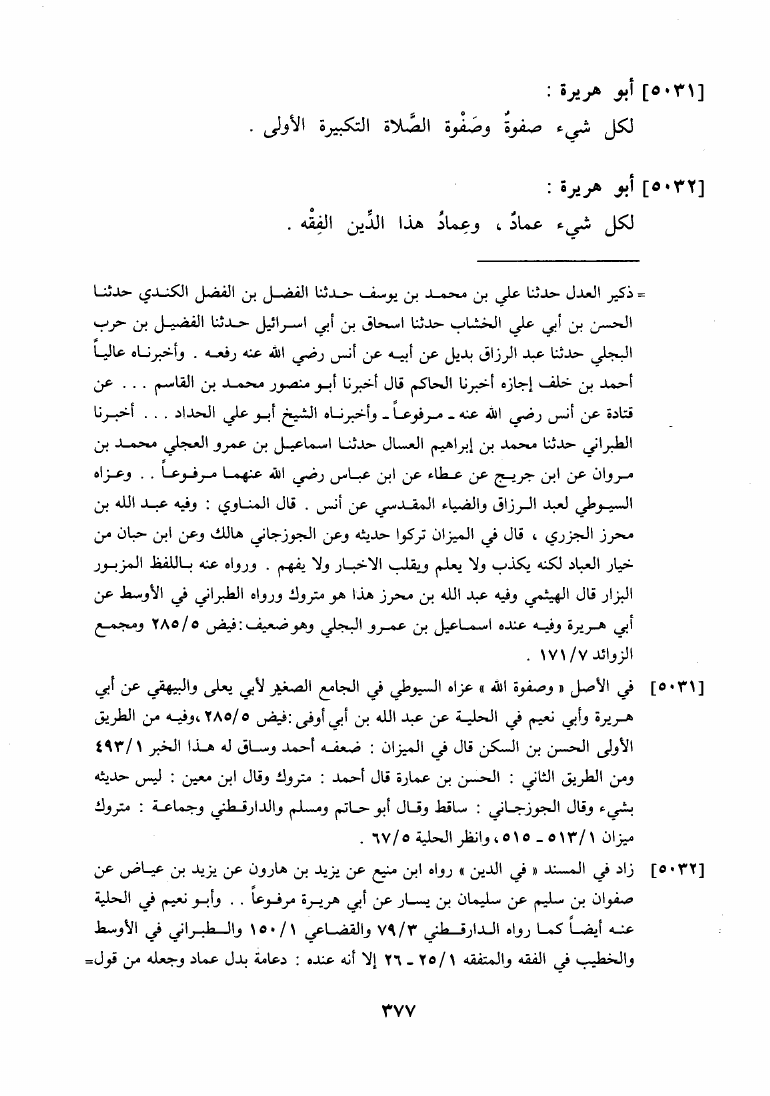 [٥٠٣١] أبو هريرة :
لكل شيء صفوةٌ وصَفْوة الصَّلاة التكبيرة الأولى .
[٥٠٣٢] أبو هريرة :
لكل شيء عمادٌ ، وعِمادُ هذا الدِّين الفِقْه .
= ذكير العدل حدثنا علي بن محمد بن يوسف حدثنا الفضل بن الفضل الكندي حدثنا
الحسن بن أبي علي الخشاب حدثنا اسحاق بن أبي اسرائيل حدثنا الفضيل بن حرب
البجلي حدثنا عبد الرزاق بديل عن أبيه عن أنس رضي الله عنه رفعه . وأخبرناه عالياً
أحمد بن خلف إجازه أخبرنا الحاكم قال أخبرنا أبو منصور محمد بن القاسم ... عن
قتادة عن أنس رضي الله عنه - مرفوعاً - وأخبرناه الشيخ أبو علي الحداد ... أخبرنا
الطبراني حدثنا محمد بن إبراهيم العسال حدثنا اسماعيل بن عمرو العجلي محمد بن
مروان عن ابن جريج عن عطاء عن ابن عباس رضي الله عنهما مرفوعاً .. وعزاه
السيوطي لعبد الرزاق والضياء المقدسي عن أنس . قال المناوي : وفيه عبد الله بن
محرز الجزري ، قال في الميزان تركوا حديثه وعن الجوزجاني هالك وعن ابن حبان من
خيار العباد لكنه يكذب ولا يعلم ويقلب الاخبار ولا يفهم . ورواه عنه باللفظ المزبور
البزار قال الهيثمي وفيه عبد الله بن محرز هذا هو متروك ورواه الطبراني في الأوسط عن
أبي هريرة وفيه عنده اسماعيل بن عمرو البجلي وهو ضعيف : فيض ٢٨٥/٥ ومجمع
الزوائد ١٧١/٧ .
[٥٠٣١] في الأصل « وصفوة الله » عزاه السيوطي في الجامع الصغير لأبي يعلى والبيهقي عن أبي
هريرة وأبي نعيم في الحلية عن عبد الله بن أبي أوفى : فيض ٢٨٥/٥ ، وفيه من الطريق
الأولى الحسن بن السكن قال في الميزان : ضعفه أحمد وساق له هذا الخبر ٤٩٣/١
ومن الطريق الثاني : الحسن بن عمارة قال أحمد : متروك وقال ابن معين : ليس حديثه
بشيء وقال الجوزجاني : ساقط وقال أبو حاتم ومسلم والدارقطني وجماعة : متروك
ميزان ٥١٣/١ - ٥١٥ ، وانظر الحلية ٦٧/٥ .
[٥٠٣٢] زاد في المسند « في الدين » رواه ابن منيع عن يزيد بن هارون عن يزيد بن عياض عن
صفوان بن سليم عن سليمان بن يسار عن أبي هريرة مرفوعاً .. وأبو نعيم في الحلية
عنه أيضاً كما رواه الدارقطني ٧٩/٣ والقضاعي ١٥٠/١ والطبراني في الأوسط
والخطيب في الفقه والمتفقه ٢٥/١ - ٢٦ إلا أنه عنده : دعامة بدل عماد وجعله من قول=
٣٧٧